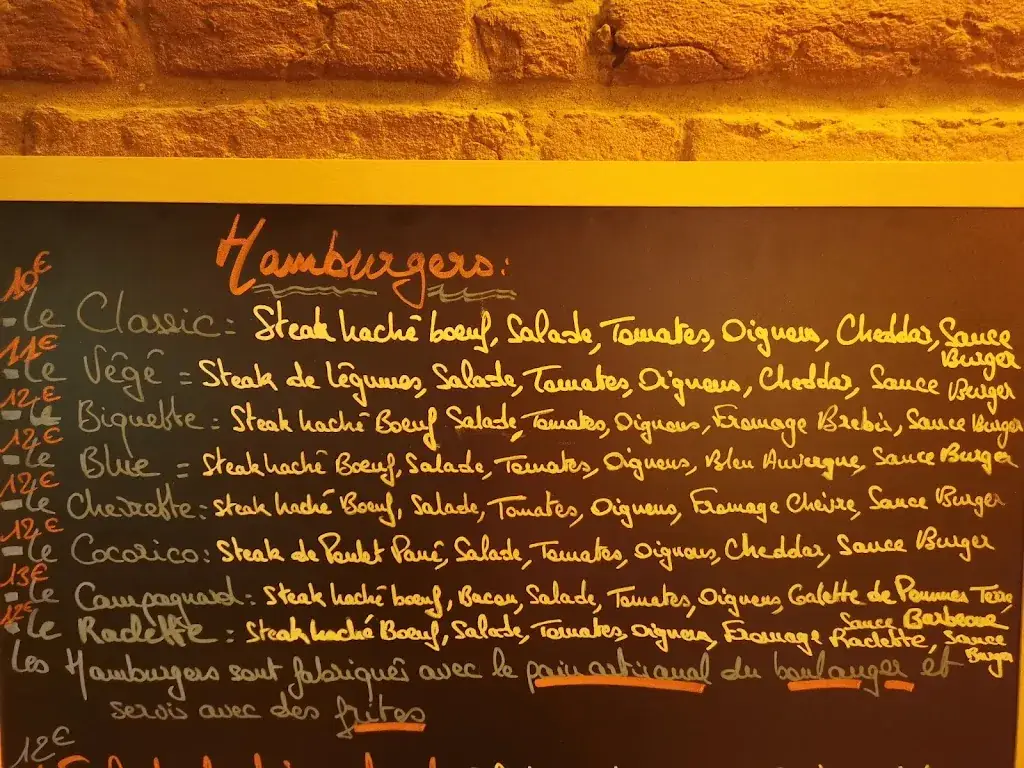 Hamburgers:
10€
- Le Classic: Steak haché boeuf, Salade, Tomates, Oignons, Cheddar, Sauce Burger
11€
- Le Végé = Steak de légumes, Salade, Tomates, Oignons, Cheddar, Sauce Burger
12€
- Le Biquette: Steak haché Boeuf Salade, Tomates, Oignons, Fromage Brebis, Sauce Burger
12€
- Le Blue = Steak haché Boeuf, Salade, Tomates, Oignons, Bleu Auvergne, Sauce Burger
12€
- Le Chevrette: Steak haché Boeuf, Salade, Tomates, Oignons, Fromage Chèvre, Sauce Burger
12€
- Le Cocorico: Steak de Poulet Pané, Salade, Tomates, Oignons, Cheddar, Sauce Burger
13€
- Le Campagnard: Steak haché boeuf, Bacon, Salade, Tomates, Oignons, Galette de Pommes Terre, Sauce Barbecue
12€
- Le Raclette: Steak haché Boeuf, Salade, Tomates, Oignons, Fromage Raclette, Sauce Burger
Les Hamburgers sont fabriqués avec le pain artisanal du boulanger et
servis avec des frites
12€